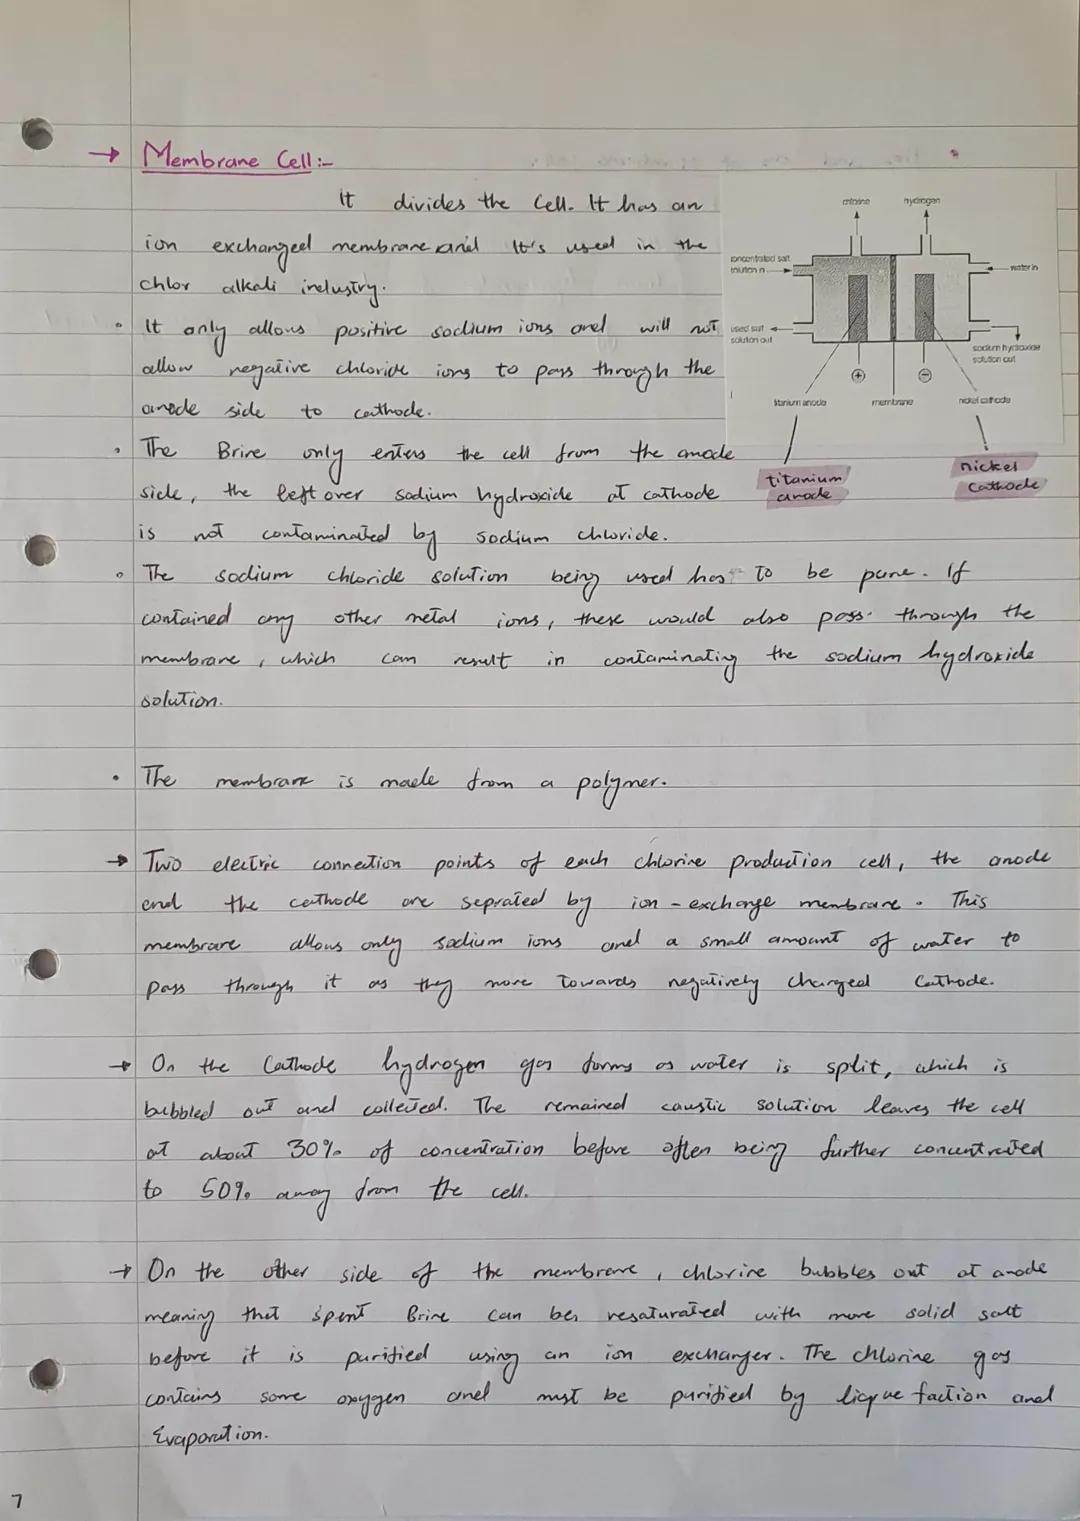 → Membrane Cell:-
It divides the Cell. It has an
ion exchanged membrane and It's used in the
chlor alkali industry.
• It only allows positive sodium ions and will not
allow negative chloride ions to pass through the
anode side to cathode.
• The Brine only enters the cell from the anode
side, the left over sodium hydroxide at cathode
is not contaminated by sodium chloride.
chlorine hydrogen
concentrated salt
solution in
water in
used salt
solution out
sodium hydroxide
solution out
+ −
titanium anode membrane nickel cathode
titanium
anode
nickel
Cathode
• The sodium chloride solution being used has to be pure. If
contained any other metal ions, these would also pass through the
membrane, which can result in contaminating the sodium hydroxide
solution.
• The membrane is made from a polymer.
→ Two electric connection points of each chlorine production cell, the anode
and the cathode are seprated by ion-exchange membrane. This
membrane allows only sodium ions and a small amount of water to
pass through it as they move towards negatively charged Cathode.
→ On the Cathode hydrogen gas forms as water is split, which is
bubbled out and collected. The remained caustic solution leaves the cell
at about 30% of concentration before often being further concentrated
to 50% away from the cell.
→ On the other side of the membrane, chlorine bubbles out at anode
meaning that spent Brine can be resaturated with more solid salt
before it is purified using an ion exchanger. The chlorine gas
contains some oxygen and must be purified by liquefaction and
Evaporation.
7